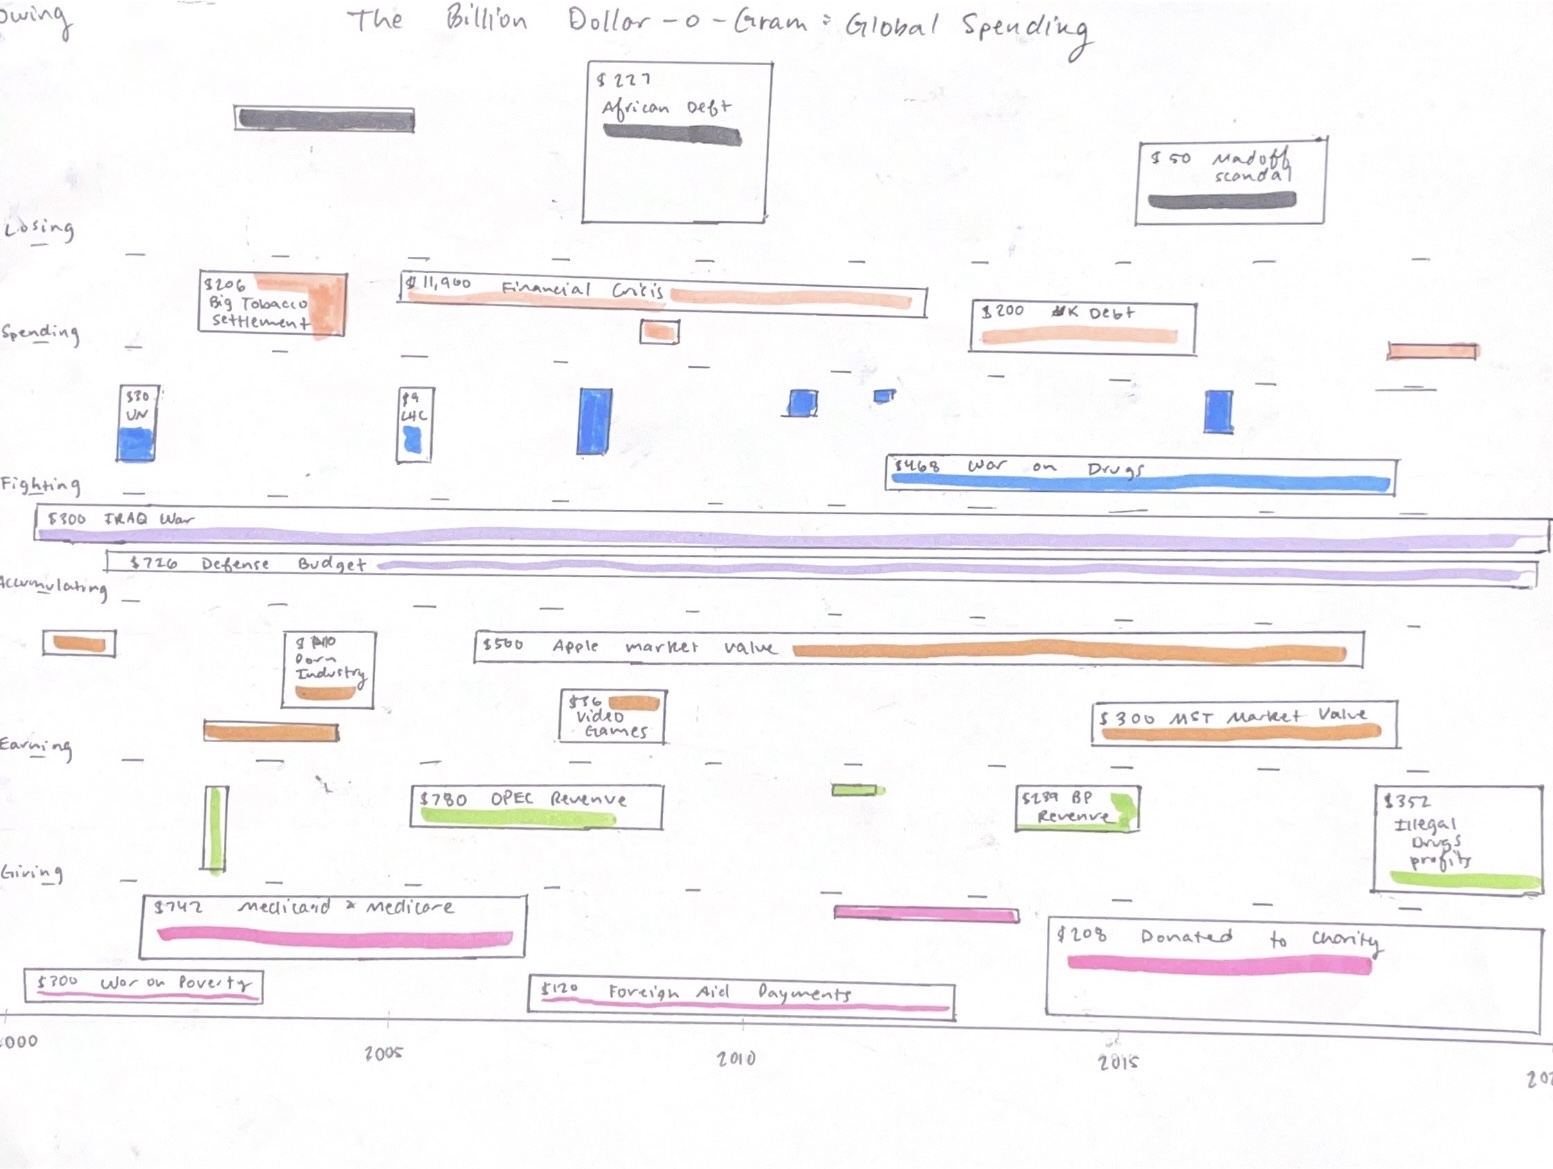 Owing
The Billion Dollar-o-Gram: Global Spending
$227
African Debt
$50 Madoff
scandal
Losing
$206
Big Tobacco
settlement
$11,900 Financial Crisis
$200 UK Debt
Spending
$30
UN
$9
LHC
$468 War on Drugs
Fighting
$300 IRAQ War
$726 Defense Budget
Accumulating
Porn
Industry
$500 Apple market value
$36
Video
Games
$300 MST Market Value
Earning
$780 OPEC Revenue
$239 BP
Revenue
$352
Illegal
Drugs
profits
Giving
$742 Medicaid & Medicare
$208 Donated to charity
$300 War on Poverty
$120 Foreign Aid Payments
000 2005 2010 2015 202